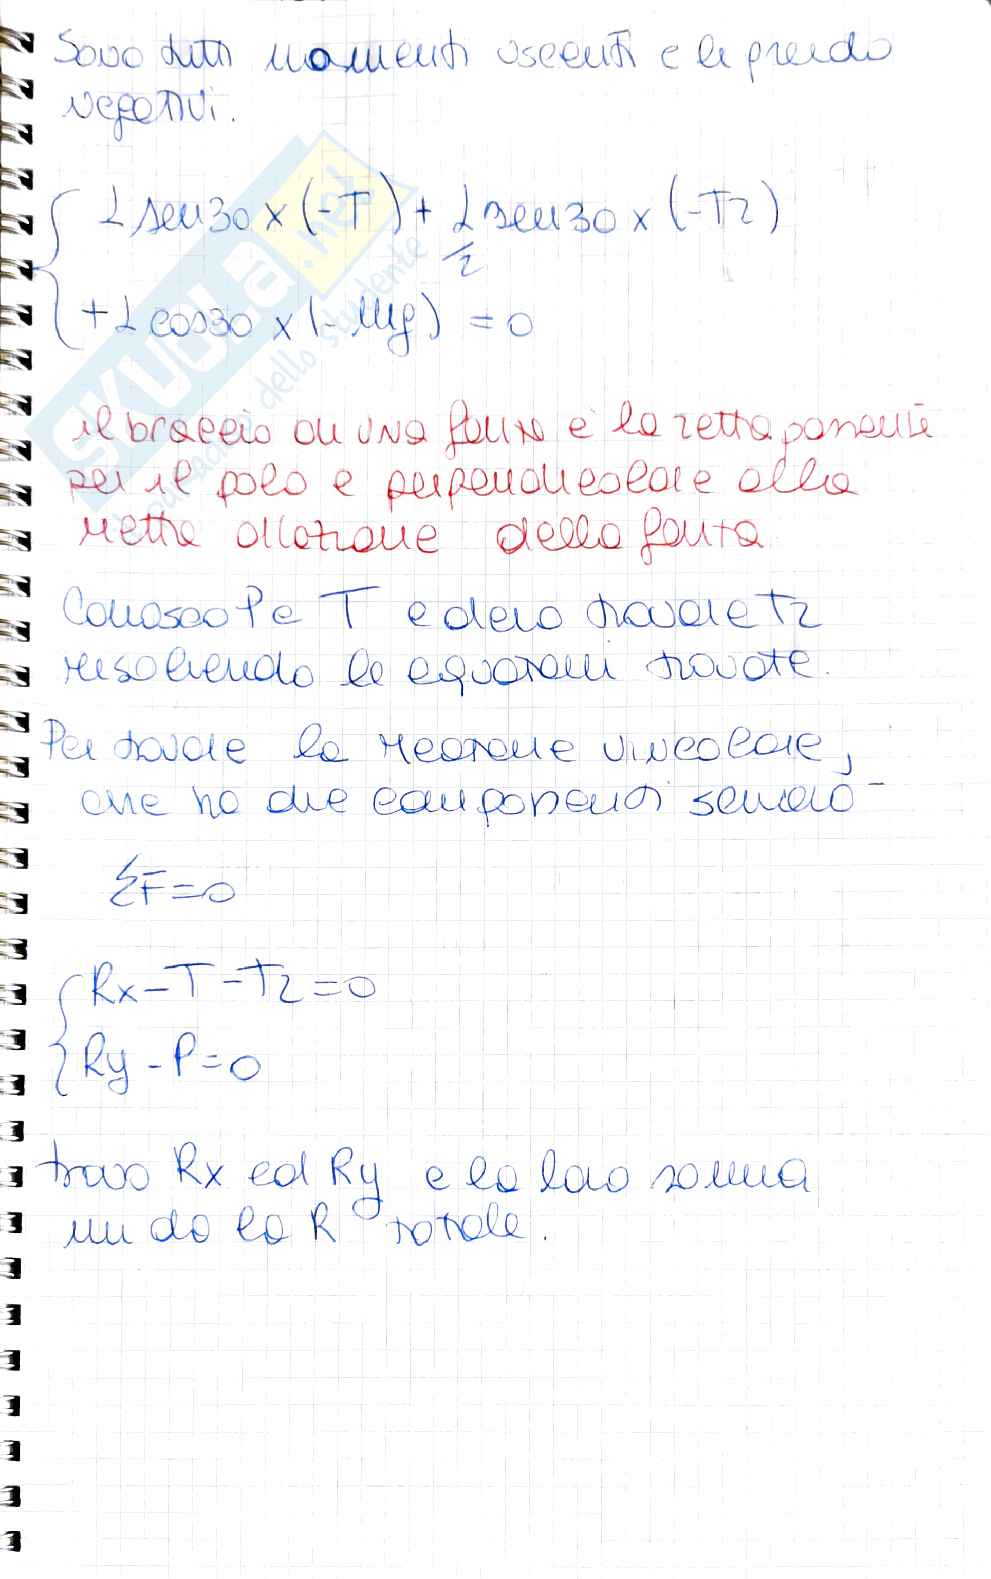 Sono tutti momenti uscenti e li prendo
negativi.
L sen30 x (-T) + L/2 sen30 x (-T2)
+ L cos30 x (-Mg) = 0
SKUOLA.net
dello studente
il braccio di una forza è la retta passante
per il polo e perpendicolare alla
retta d'azione della forza.
Conosco P e T e devo trovare T2
risolvendo le equazioni trovate.
Per trovare la reazione vincolare,
che ha due componenti scriverò
ΣF=0
Rx-T-T2=0
Ry-P=0
trovo Rx ed Ry e la loro somma
mi da la R totale.